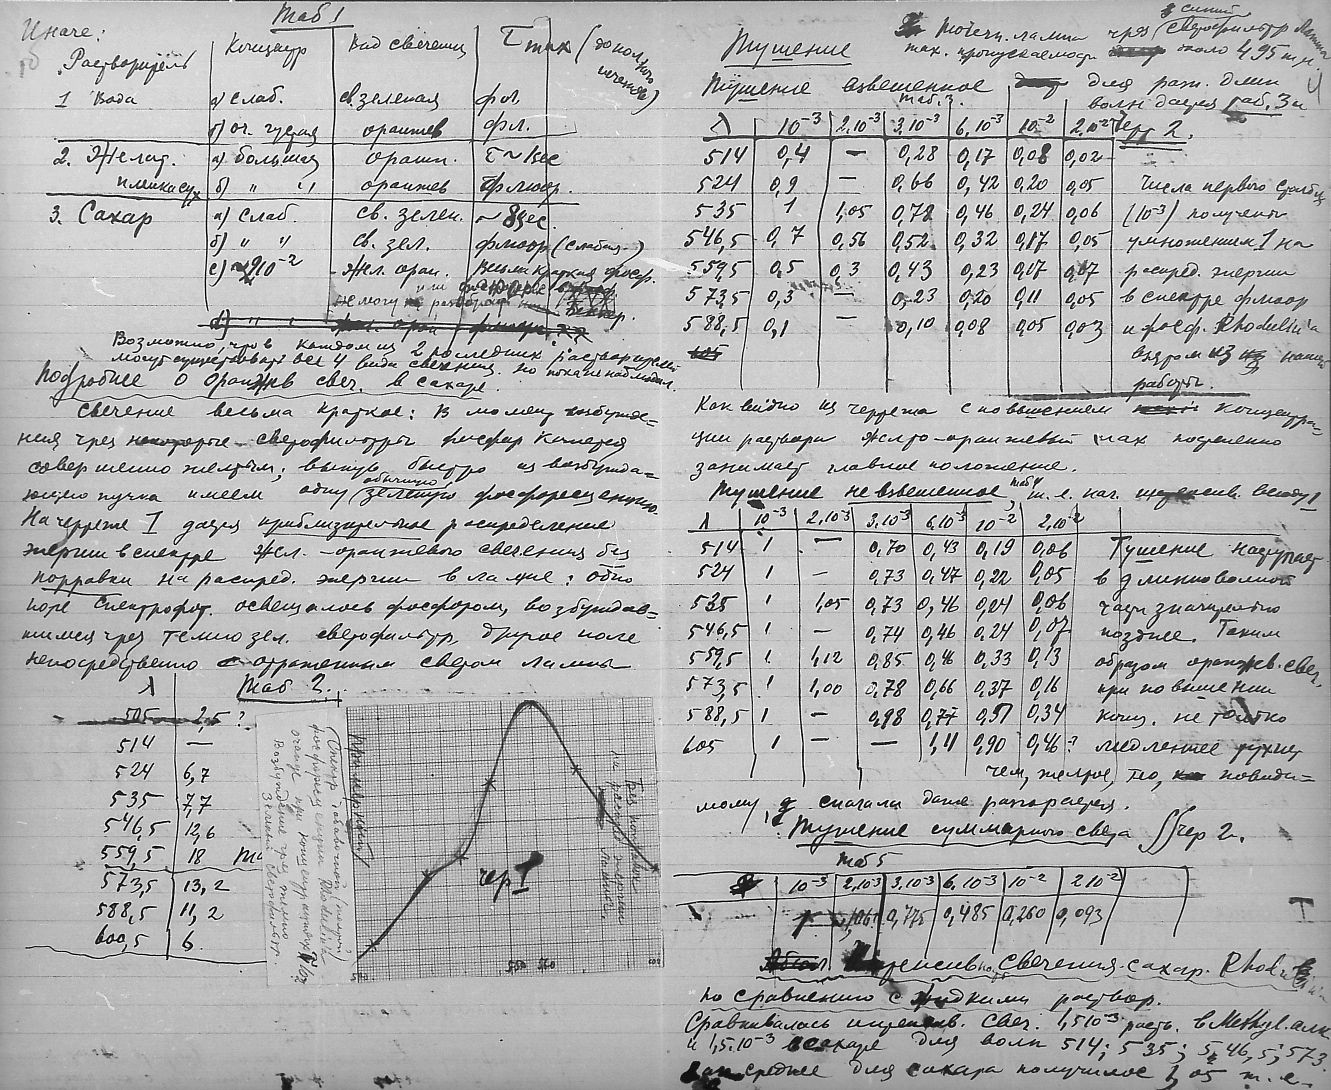 Иначе:
Таб 1
Растворитель Концентр Вид свечения τ max (до полного исчезнов)
1 Вода а) слаб. св зеленая фл.
б) оч. густая оранжев фл.
2. Желат. пленка сух а) большая оранж. τ ~ 1 sec
б) " " оранжев флюор.
3. Сахар а) слаб. св. зелен. ~ 8 sec
б) " " св. зел. флюор (слабая)
с) ~ 2 10⁻² жел. оран. весьма краткая фосф.
или
не могу разобрать
Возможно, что в каждом из 2 последних растворителей
могут существовать все 4 вида свечения, но пока не наблюдал.
Подробнее о оранжев свеч. в сахаре.
Свечение весьма краткое: в момент возбужде=
ния чрез некоторые светофильтры фосфор кажется
совершенно желтым; вынув быстро из возбужда=
ющего пучка имеем одну обычную зеленую фосфоресценцию.
На чертеже 1 дается приблизительное распределение
энергии в спектре жел.-оранжевого свечения без
поправки на распред. энергии в лампе: одно
поле спектрофот. освещалось фосфором, возбуждав=
шимся чрез темно зел. светофильтр, другое поле
непосредственно отраженным светом лампы
λ Таб 2.
505 2,5 ?
514 —
524 6,7
535 7,7
546,5 12,6
559,5 18
573,5 13,2
588,5 11,2
600,5 6
Примерный
чер 1
Без поправки на распред энергии лампы.
550 560
Тушение
В Точечн. лампа чрез синий светофильтр
max. пропускаемост около 495 mμ
Тушение взвешенное для разн. длин
волн дается таб. 3 и
Таб. 3.
черт 2.
λ 10⁻³ 2.10⁻³ 3.10⁻³ 6.10⁻³ 10⁻² 2.10⁻²
514 0,4 — 0,28 0,17 0,08 0,02
524 0,9 — 0,66 0,42 0,20 0,05 Числа первого столбца
535 1 1,05 0,78 0,46 0,24 0,06 (10⁻³) получены
546,5 0,7 0,56 0,52 0,32 0,17 0,05 умножением 1 на
559,5 0,5 0,3 0,43 0,23 0,17 0,07 распред. энергии
573,5 0,3 — 0,23 0,20 0,11 0,05 в спектре флюор
588,5 0,1 — 0,10 0,08 0,05 0,03 и фосф. Rhodulin'а
605
взятом из нашей
работы.
Как видно из чертежа с повышением концентра=
ции раствора желто-оранжевый max постепенно
занимает главное положение.
Тушение невзвешенное, таб 4 т. е. нач. интенсивн. всюду 1
λ 10⁻³ 2.10⁻³ 3.10⁻³ 6.10⁻³ 10⁻² 2.10⁻²
514 1 — 0,70 0,43 0,19 0,06 Тушение наступает
524 1 — 0,73 0,47 0,22 0,05 в длинноволной
535 1 1,05 0,73 0,46 0,24 0,06 части значительно
546,5 1 — 0,74 0,46 0,24 0,07 позднее. Таким
559,5 1 1,12 0,85 0,46 0,33 0,13 образом оранжев. свеч.
573,5 1 1,00 0,78 0,66 0,37 0,16 при повышении
588,5 1 — 0,98 0,77 0,51 0,34 конц. не только
605 1 — — 1,11 0,90 0,46 ? медленнее тухнет
чем, желтое, но, повиди=
мому, сначала даже разгорается.
Тушение суммарного света ∫∫ чер 2.
Таб 5
10⁻³ 2.10⁻³ 3.10⁻³ 6.10⁻³ 10⁻² 2 10⁻²
1 1,06 0,775 0,485 0,260 0,093
интенсивность свечения сахар. Rhodulin
по сравнению с жидкими раствор.
Сравнивалась интенсив. свеч. 1,5 10⁻³ раств. в Methyl. алк
и 1,5.10⁻³ в сахаре для волн 514; 535; 546,5; 573.
среднее для сахара получилось 1,05 т. е.